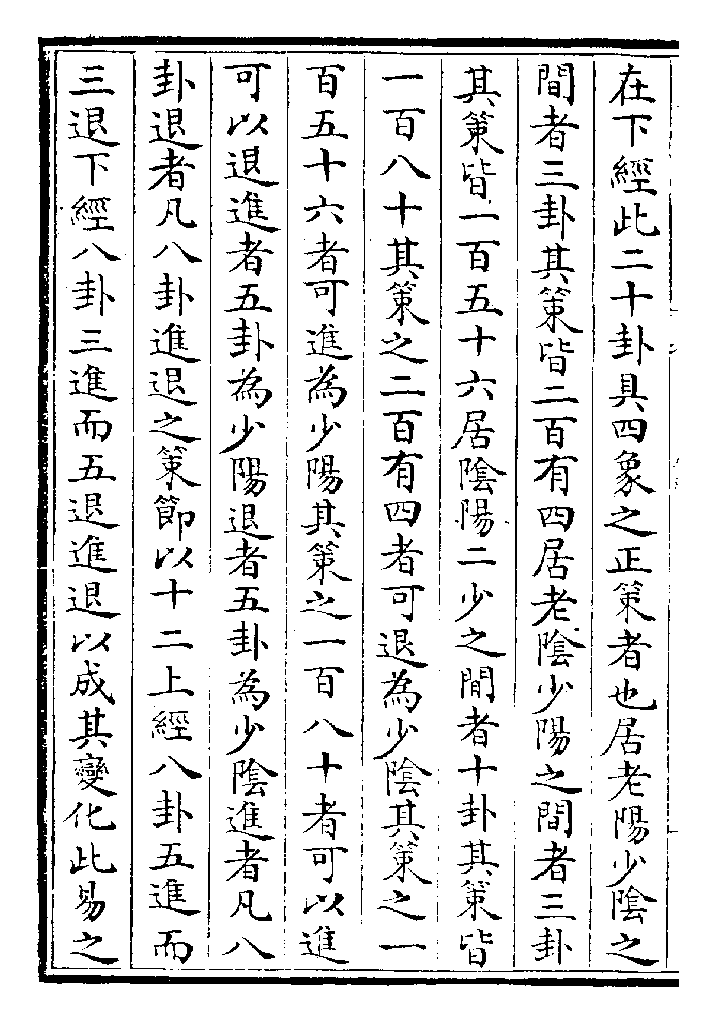 在下經此二十卦具四象之正策者也居老陽少陰之
間者三卦其策皆二百有四居老陰少陽之間者三卦
其策皆一百五十六居陰陽二少之間者十卦其策皆
一百八十其策之二百有四者可退為少陰其策之一
百五十六者可進為少陽其策之一百八十者可以進
可以退進者五卦為少陽退者五卦為少陰進者凡八
卦退者凡八卦進退之策節以十二上經八卦五進而
三退下經八卦三進而五退進退以成其變化此易之